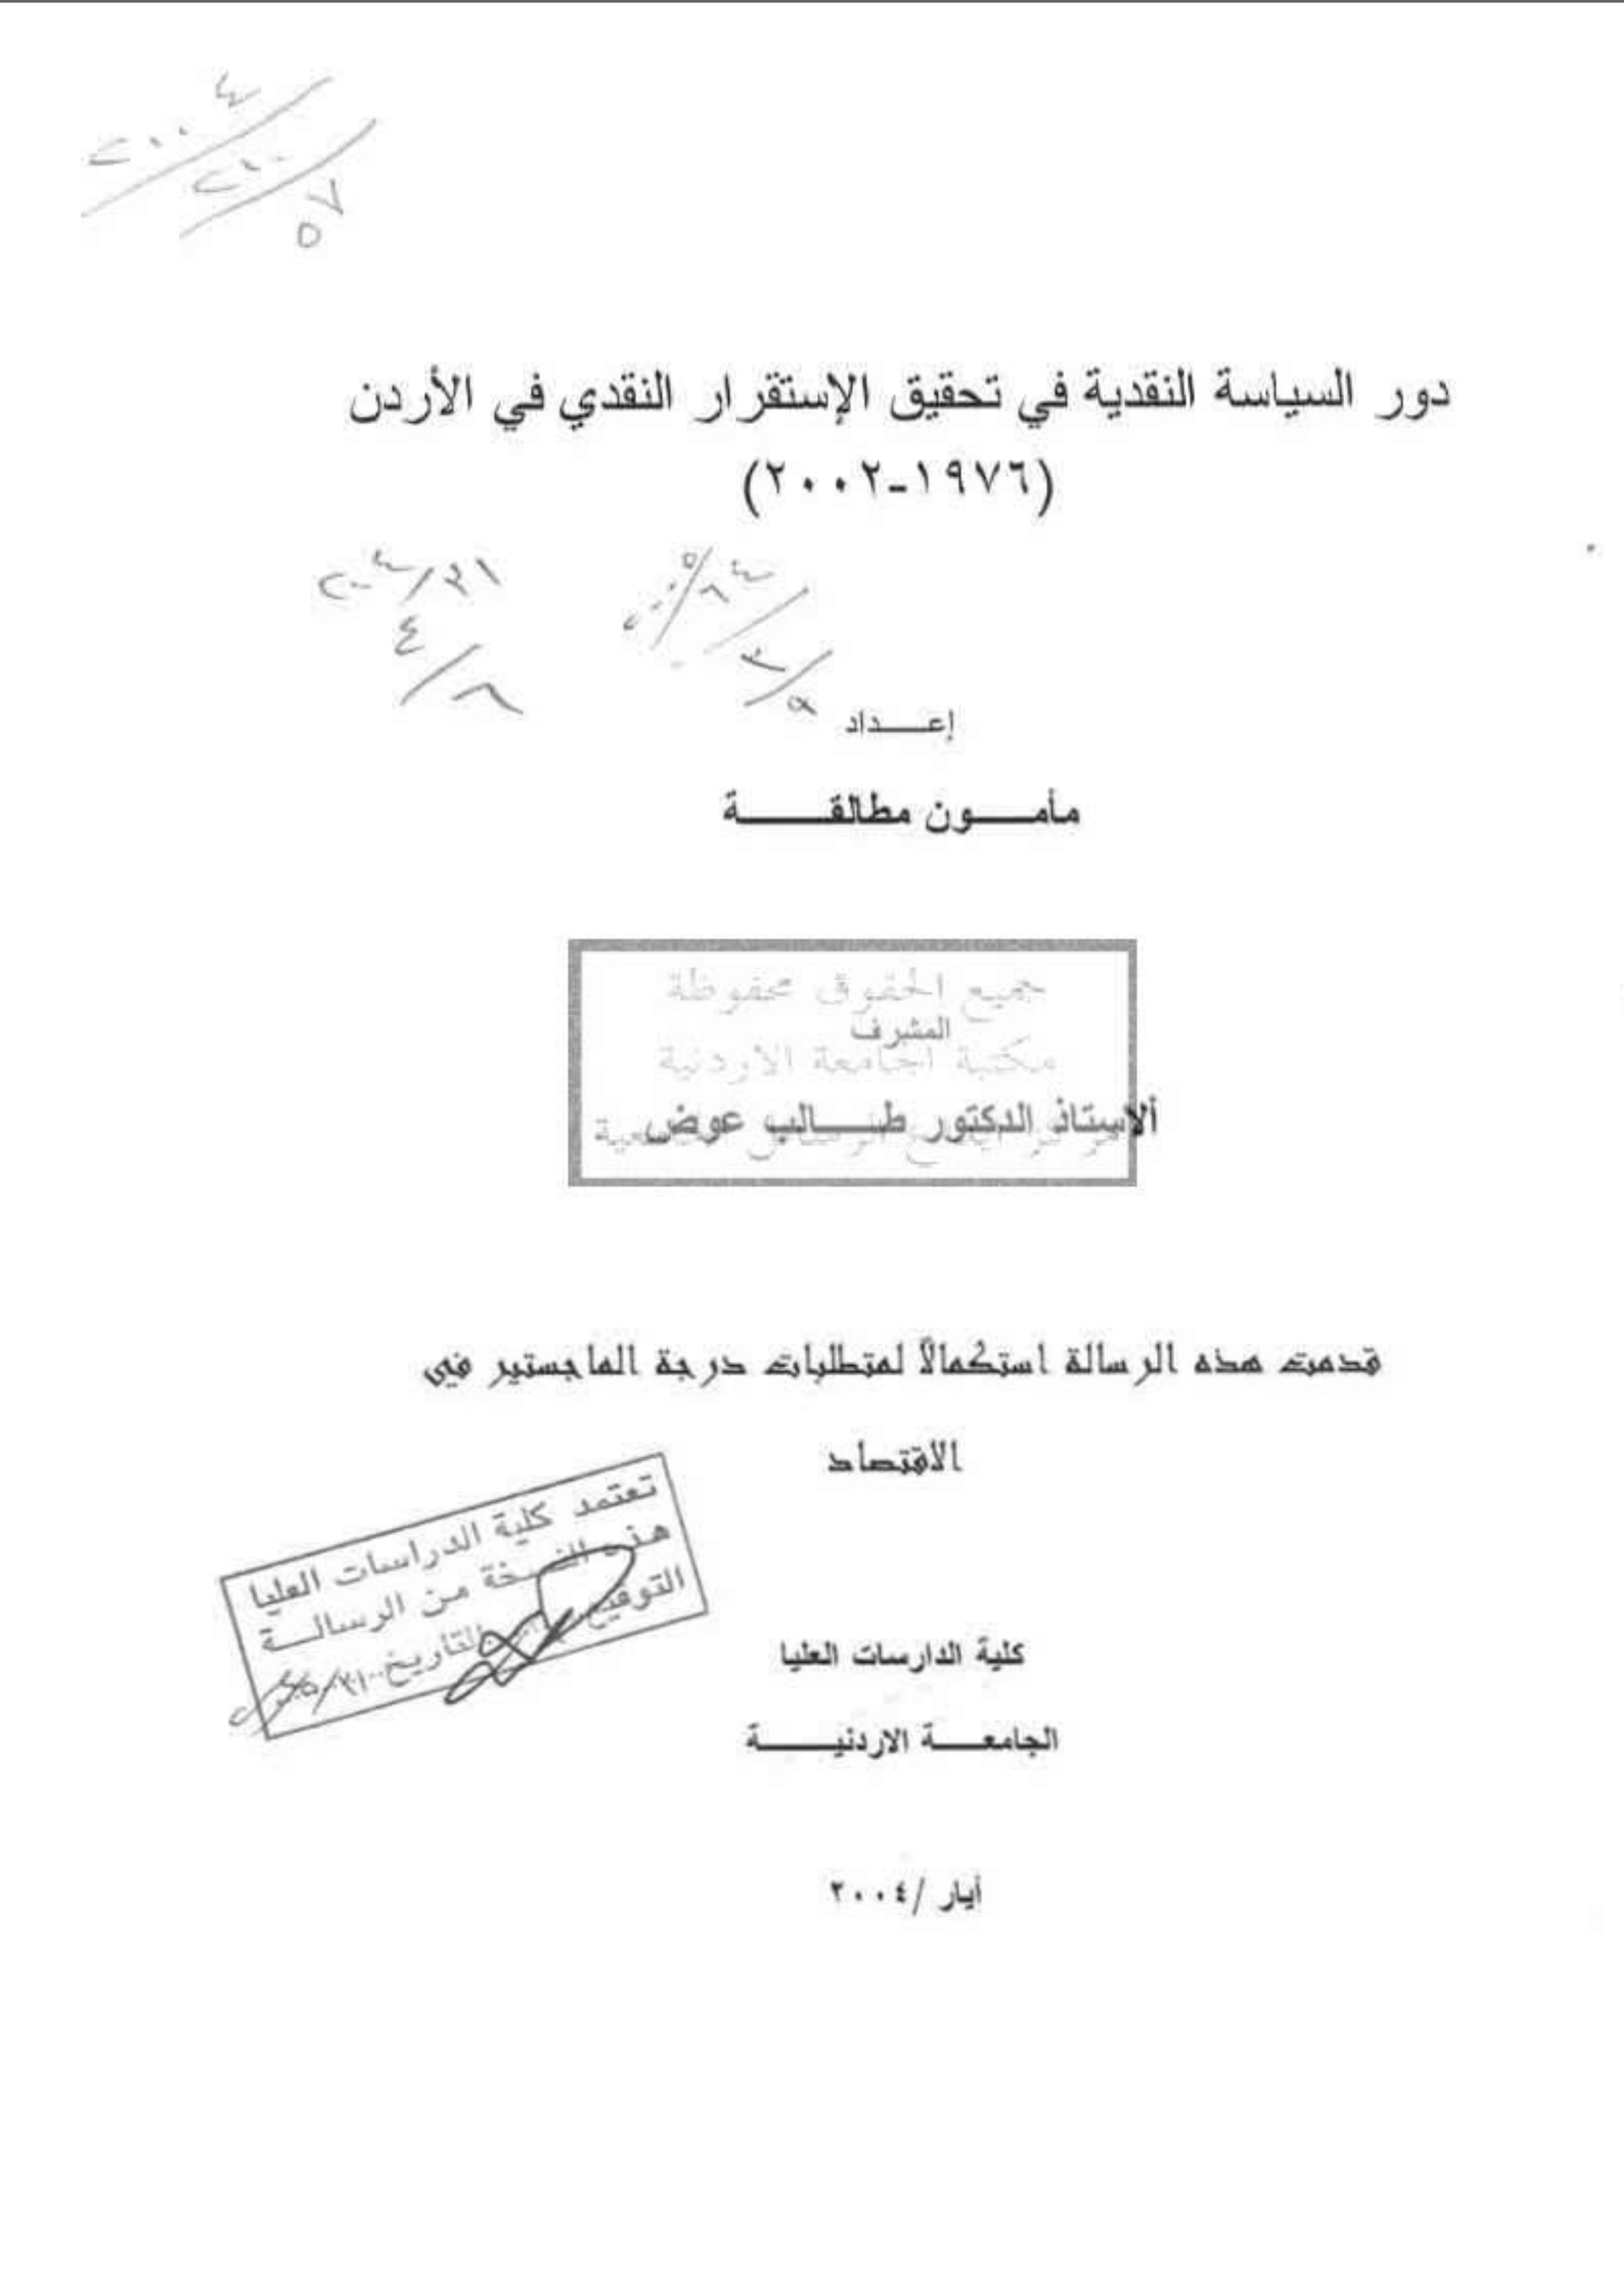 دور السياسة النقدية في تحقيق الإستقرار النقدي في الأردن
(١٩٧٦-٢٠٠٢)
إعـــــداد
مأمـــــون مطالقـــــــة
جميع الحقوق محفوظة
المشرف
مكتبة الجامعة الاردنية
ألاستاذ الدكتور طـــــالب عوض
قدمت هذه الرسالة استكمالاً لمتطلبات درجة الماجستير في
الاقتصاد
تعتمد كلية الدراسات العليا
هذه النسخة من الرسالـــة
التوقيع التاريخ
كلية الدارسات العليا
الجامعـــــة الاردنيـــــــة
أيار /٢٠٠٤